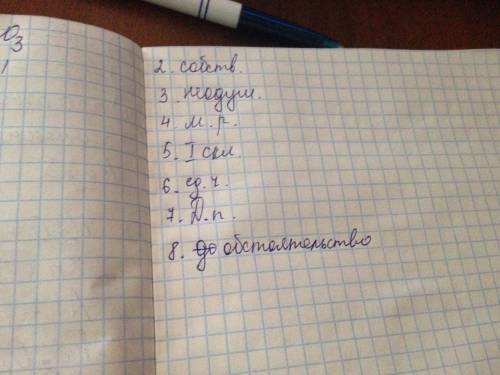 O3
2. собств.
3. неодуш.
4. м.р.
5. I скл.
6. ед.ч.
7. Д.п.
8. обстоятельство